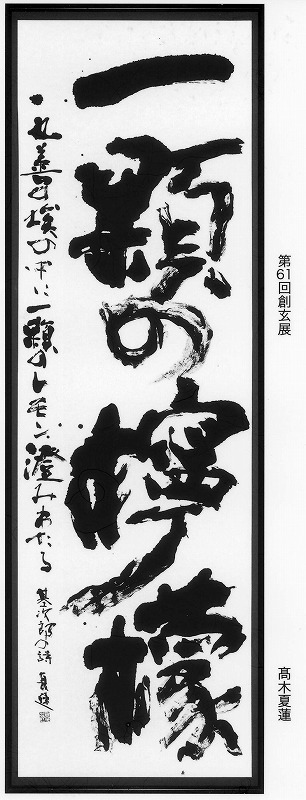 第61回創玄展
髙木夏蓮
一顆の檸檬
丸善の埃の中に一顆のレモン澄みわたる
基次郎の詩 夏蓮